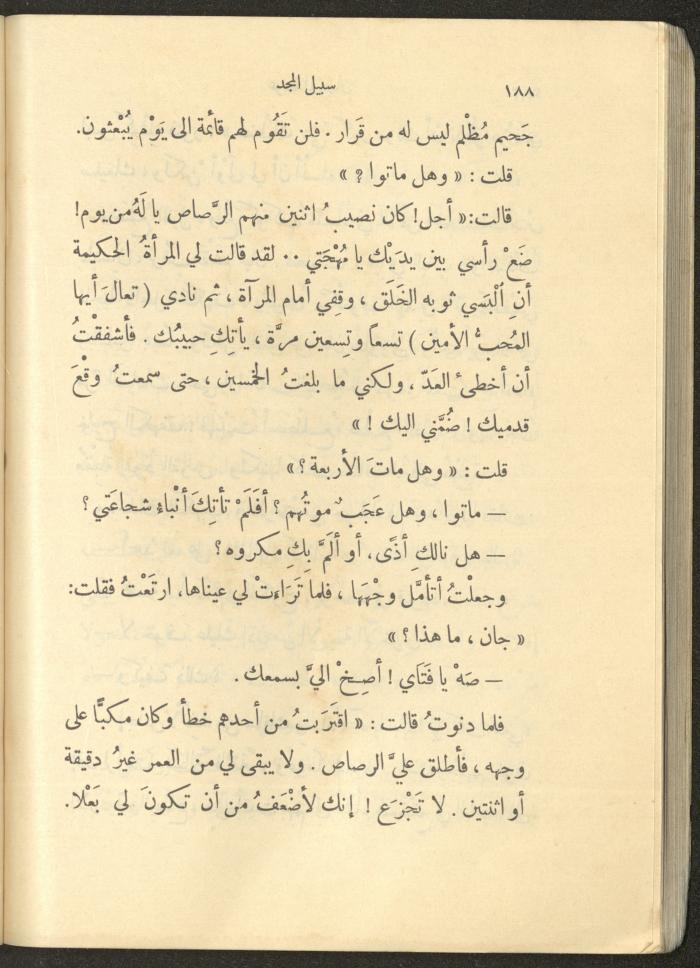 ١٨٨ سبيل المجد
جَحيم مُظْلم ليس له من قَرار . فلن تَقُوم لهم قائمة الى يَوْم يُبْعثون.
قلت : « وهل ماتوا ? »
قالت:« أجل! كان نصيبُ اثنين منهم الرَّصاص يا لَهُ من يوم!
ضَعْ رأسي بين يديْك يا مُهْجَتي ٠٠ لقد قالت لي المرأةُ الحكيمة
أنِ ٱلْبَسي ثوبه الخَلَق ، وقِفي أمام المرآة ، ثم نادي ( تعالَ أيها
المُحبُّ الأمين ) تسعاً وتِسعين مرَّة ، يأتكِ حبيبُك . فأشفقْتُ
أن أخطىء العَدّ ، ولكني ما بلغتُ الخمسين ، حتى سمعتُ وقْعَ
قدميك ! ضُمَّني اليك ! »
قلت : « وهل ماتَ الأربعة ؟ »
— ماتوا ، وهل عَجَبٌ موتُهم ؟ أفَلَمْ تأتكَ أنْباءُ شجاعَتي ؟
— هل نالكِ أذًى، أو ألَمَّ بِكِ مكروه ؟
وجعلْتُ أتأمَّل وجْهَها ، فلما تَرَاءتْ لي عيناها، ارتَعْتُ فقلت:
« جان ، ما هذا ؟ »
— صَهْ يا فَتَاي ! أصِخْ اليَّ بسمعك .
فلما دنوتُ قالت : « اقتَرَبتُ من أحدهم خطأ وكان مكبًّا على
وجهه ، فأطلق عليَّ الرصاص . ولا يبقى لي من العمر غيرُ دقيقة
أو اثنتين . لا تَجْزَع ! إنك لأضْعَفُ من أن تكونَ لي بَعْلا.